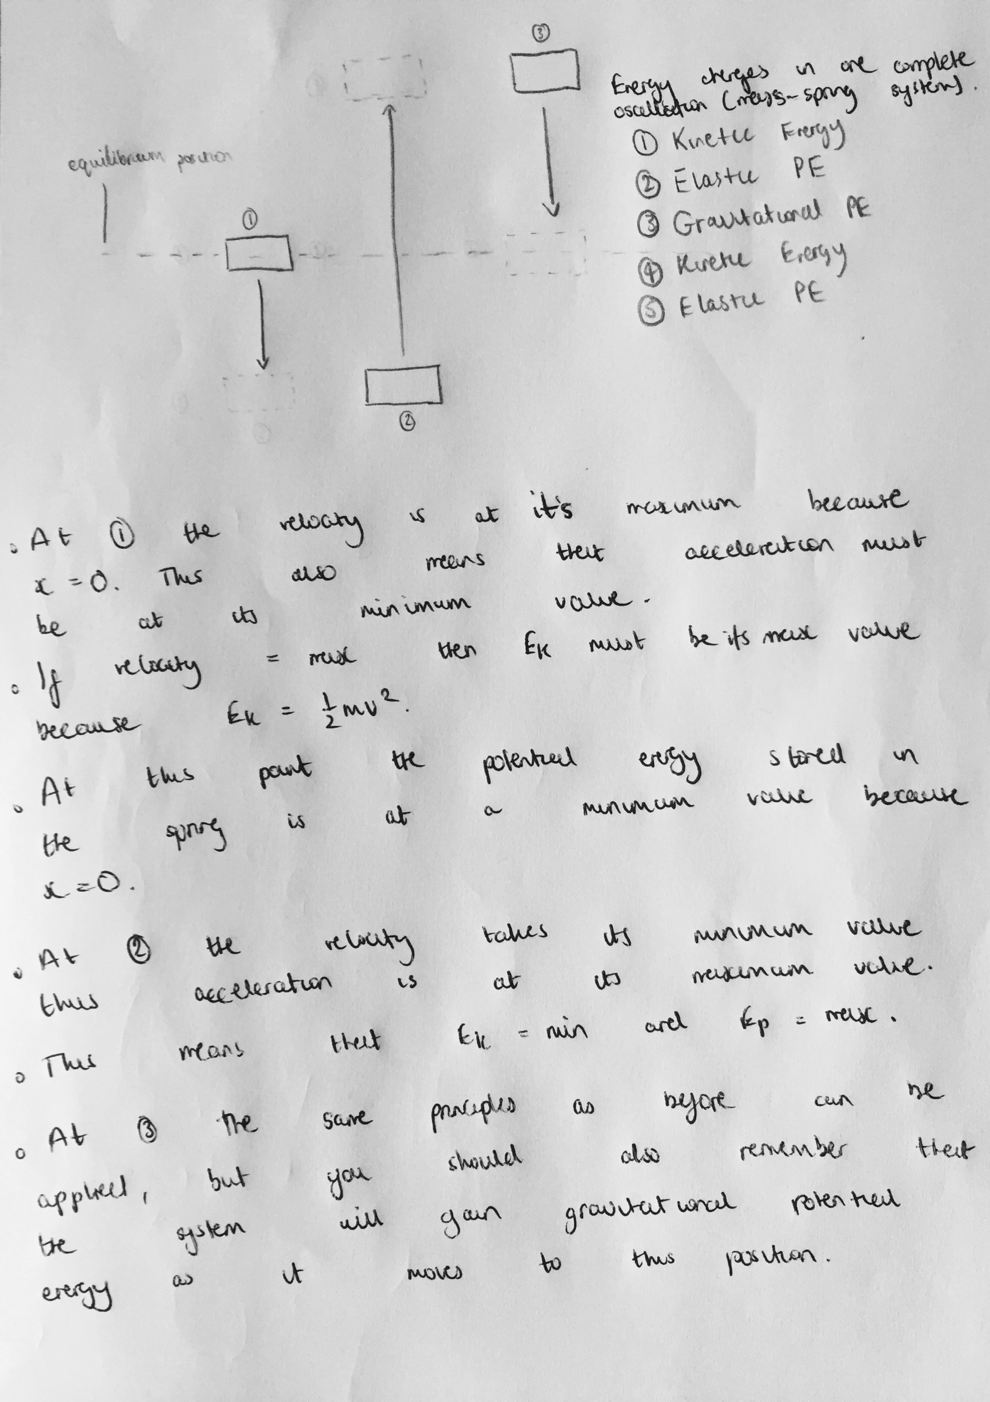 ③
Energy changes in one complete
oscillation (mass-spring system).
① Kinetic Energy
② Elastic PE
③ Gravitational PE
④ Kinetic Energy
⑤ Elastic PE
equilibrium position
①
②
• At ① the velocity is at it's maximum because
x = 0. This also means that acceleration must
be at its minimum value.
• If velocity = max then EK must be its max value
because EK = 1/2 mv².
• At this point the potential energy stored in
the spring is at a minimum value because
x = 0.
• At ② the velocity takes its minimum value
thus acceleration is at its maximum value.
• This means that EK = min and Ep = max.
• At ③ the same principles as before can be
applied, but you should also remember that
the system will gain gravitational potential
energy as it moves to this position.